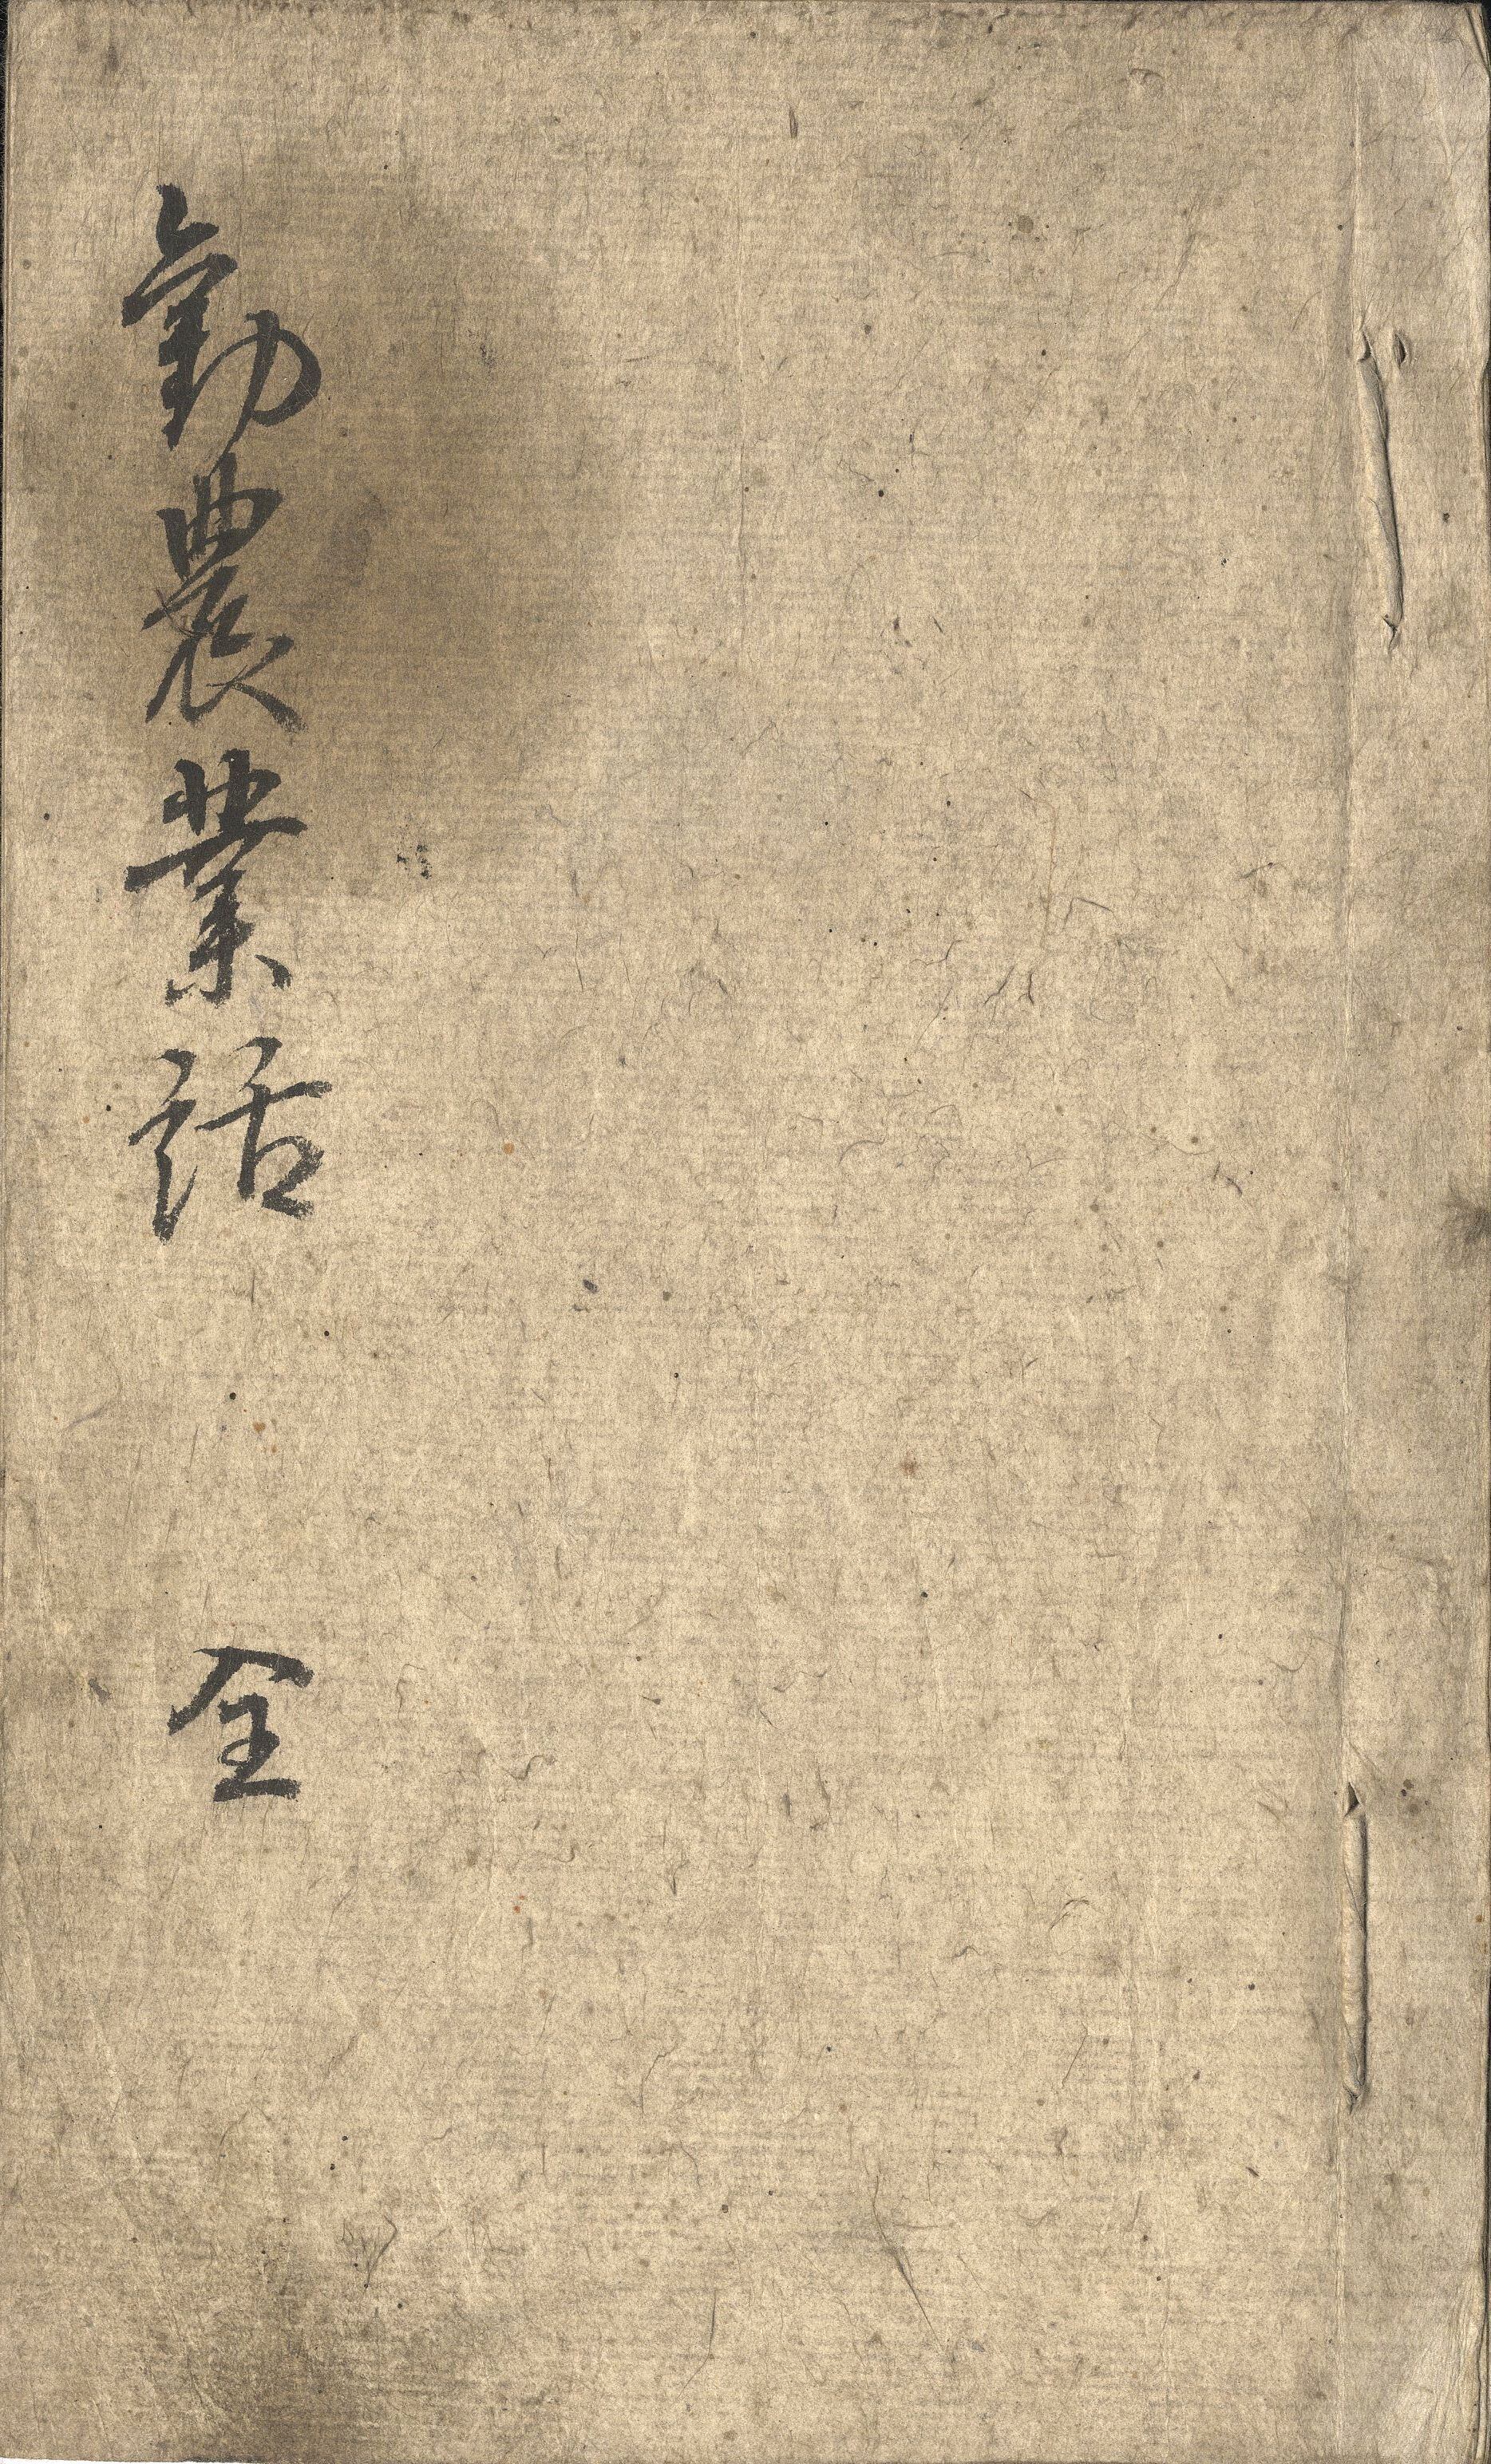 勧農業話 全